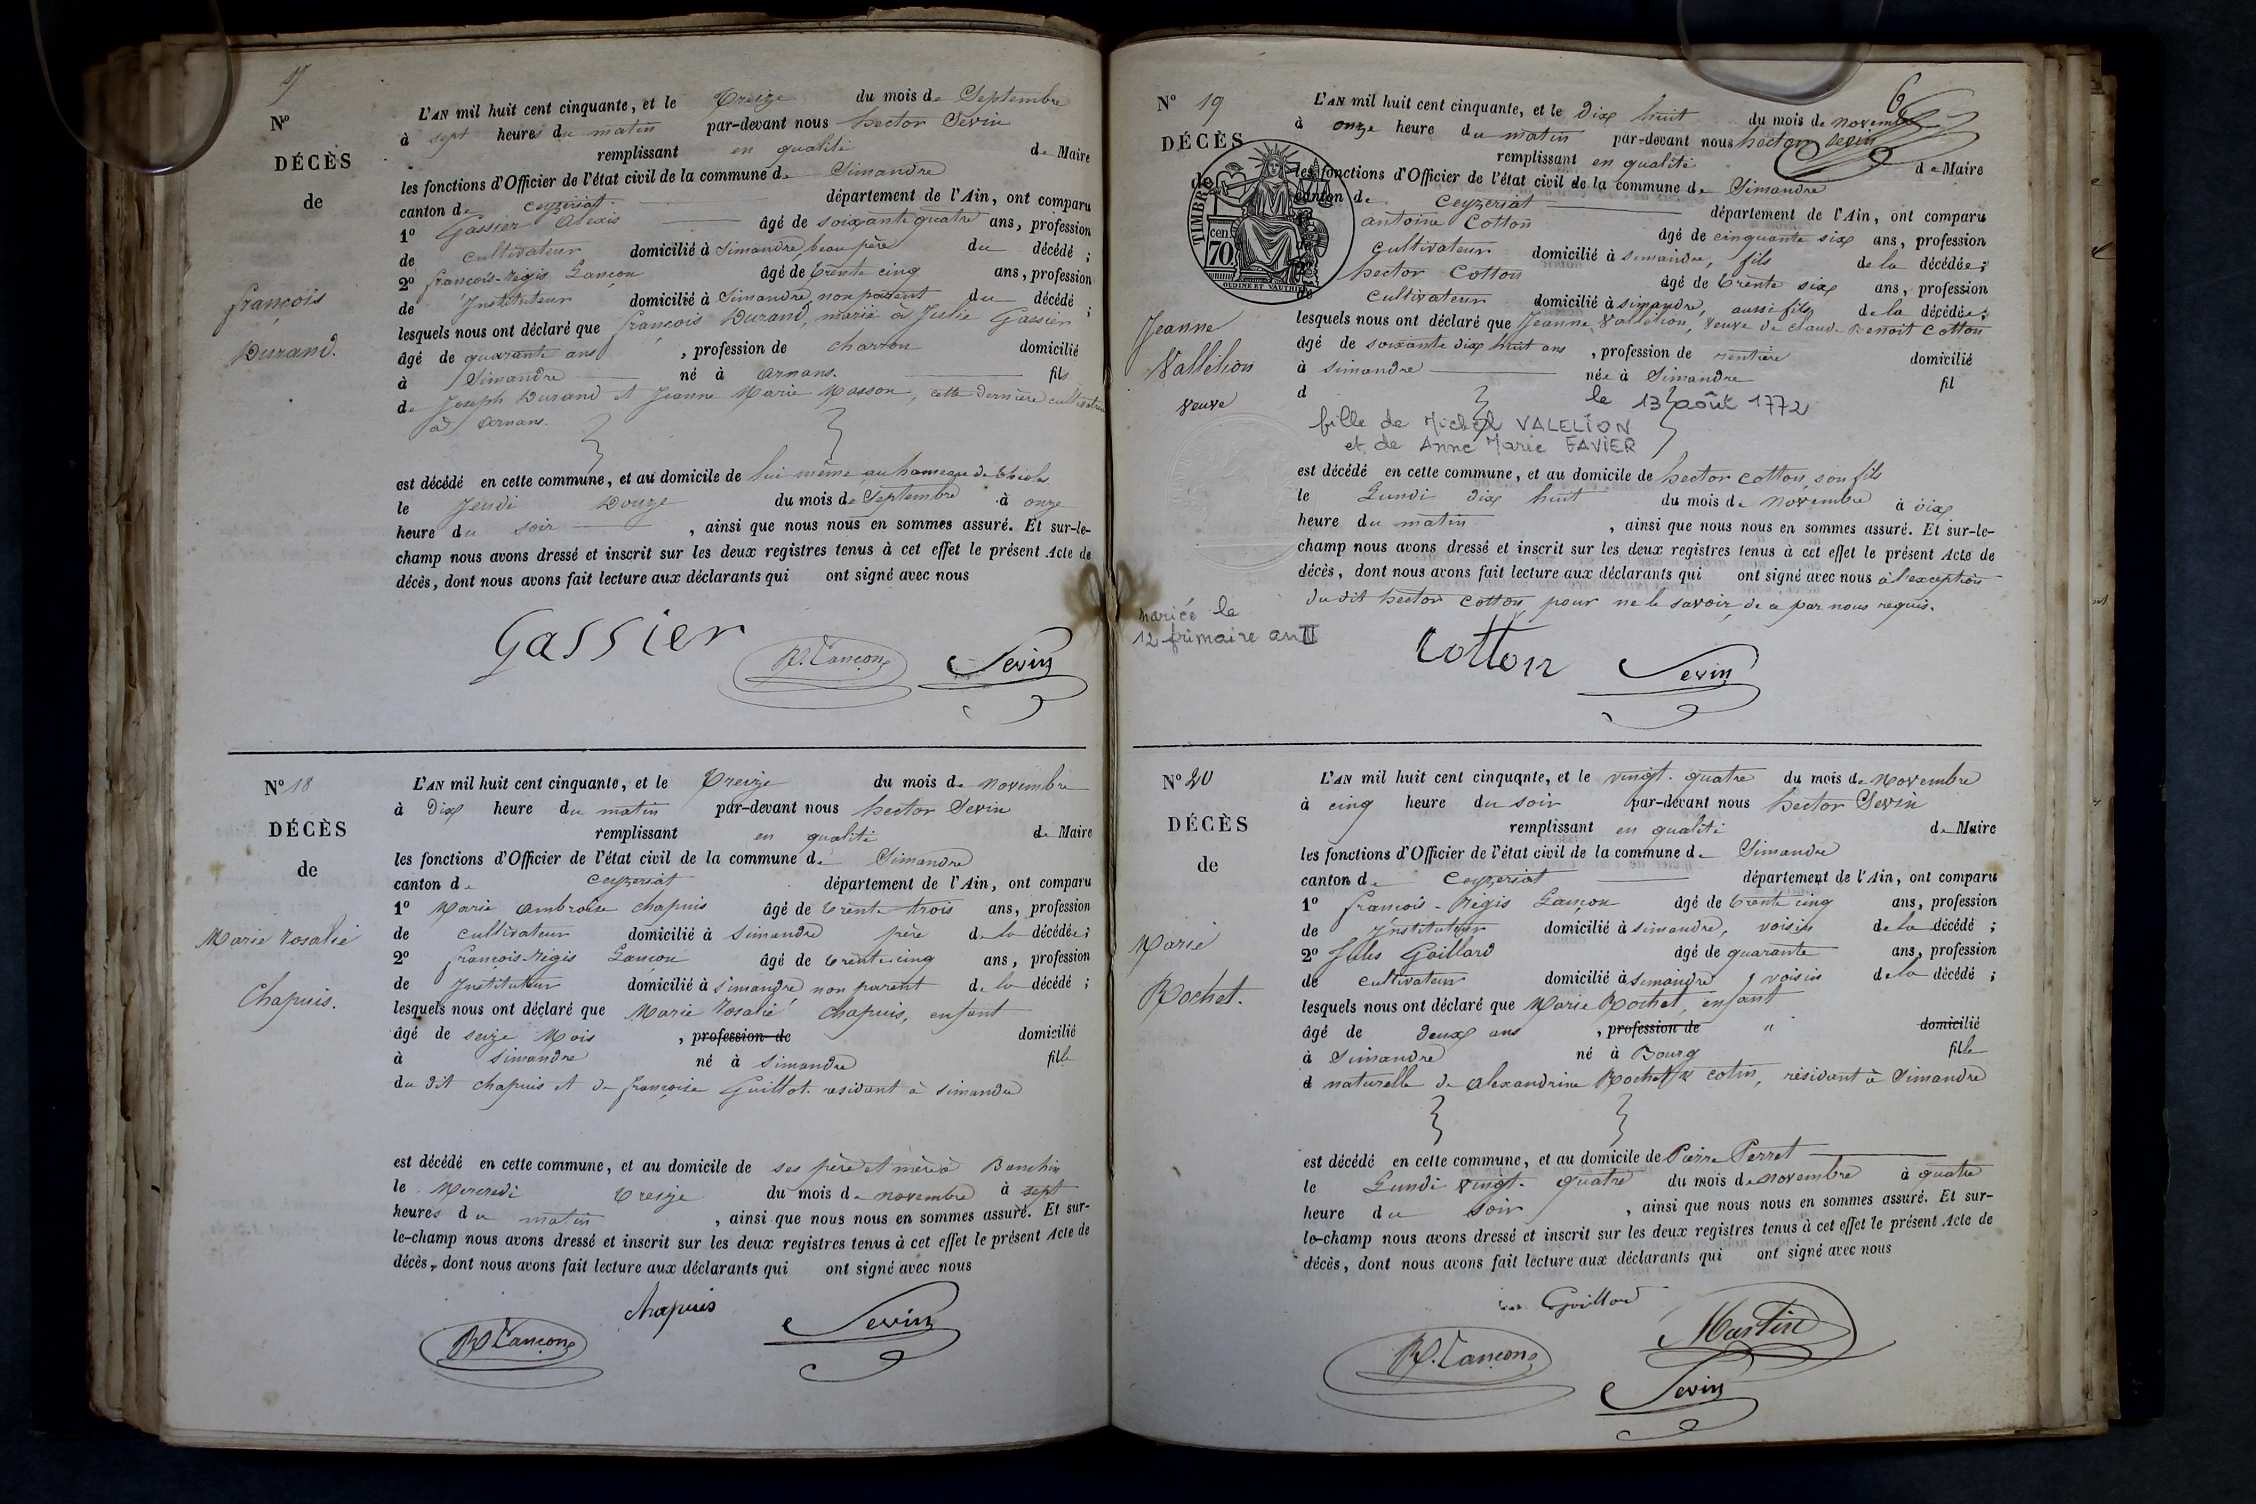 17
N°
DÉCÈS
de
François
Durand.
L'AN mil huit cent cinquante, et le Treize du mois de Septembre
à sept heures du matin par-devant nous hector Sevin
remplissant en qualité de Maire
les fonctions d'Officier de l'état civil de la commune de Simandre
canton de Ceyzeriat département de l'Ain, ont comparu
1° Gassier Alexis âgé de soixante quatre ans, profession
de cultivateur domicilié à Simandre, beau père du décédé ;
2° françois-Régis Lançon âgé de trente cinq ans, profession
de Instituteur domicilié à Simandre, non parent du décédé ;
lesquels nous ont déclaré que françois Durand, marié à Julie Gassier
âgé de quarante ans , profession de charron domicilié
à Simandre né à Arnans. fils
de Joseph Durand et Jeanne Marie Masson, cette dernière cultivatrice
à Arnans.
est décédé en cette commune, et au domicile de lui même au hameau de
le Jeudi Douze du mois de Septembre à onze
heure du soir , ainsi que nous nous en sommes assuré. Et sur-le-
champ nous avons dressé et inscrit sur les deux registres tenus à cet effet le présent Acte de
décès, dont nous avons fait lecture aux déclarants qui ont signé avec nous
Gassier
R. Lançon
Sevin
N° 18
DÉCÈS
de
Marie Rosalie
Chapuis.
L'AN mil huit cent cinquante, et le Treize du mois de Novembre
à Dix heure du matin par-devant nous hector Sevin
remplissant en qualité de Maire
les fonctions d'Officier de l'état civil de la commune de Simandre
canton de Ceyzeriat département de l'Ain, ont comparu
1° Marie Ambroise Chapuis âgé de trente trois ans, profession
de cultivateur domicilié à Simandre père de la décédée ;
2° françois-Régis Lançon âgé de trente cinq ans, profession
de Instituteur domicilié à Simandre non parent de la décédé ;
lesquels nous ont déclaré que Marie Rosalie Chapuis, enfant
âgé de seize Mois , profession de domicilié
à Simandre né à Simandre fille
du dit Chapuis et de françoise Guillot résidant à Simandre
est décédé en cette commune, et au domicile de ses père et mère à
le Mercredi Treize du mois de novembre à sept
heures du matin , ainsi que nous nous en sommes assuré. Et sur-
le-champ nous avons dressé et inscrit sur les deux registres tenus à cet effet le présent Acte de
décès, dont nous avons fait lecture aux déclarants qui ont signé avec nous
chapuis
R Lançon
Sevin
6
N° 19
DÉCÈS
de
TIMBRE
cen.
70
OUDINÉ ET VAUTHIER
Jeanne
Vallélion
veuve
mariée le
12 frimaire an II
L'AN mil huit cent cinquante, et le Dix huit du mois de novembre
à onze heure du matin par-devant nous hector Sevin
remplissant en qualité de Maire
les fonctions d'Officier de l'état civil de la commune de Simandre
canton de Ceyzeriat département de l'Ain, ont comparu
antoine Cotton âgé de cinquante six ans, profession
cultivateur domicilié à Simandre, fils de la décédée ;
hector Cotton âgé de trente six ans, profession
de cultivateur domicilié à Simandre, aussi fils de la décédée ;
lesquels nous ont déclaré que Jeanne Vallélion, veuve de claude Benoit Cotton
âgé de soixante dix huit ans , profession de rentière domicilié
à Simandre née à Simandre fil
d le 13 août 1772
fille de Michel VALELION
et de Anne Marie FAVIER
est décédé en cette commune, et au domicile de hector Cotton, son fils
le Lundi dix huit du mois de Novembre à dix
heure du matin , ainsi que nous nous en sommes assuré. Et sur-le-
champ nous avons dressé et inscrit sur les deux registres tenus à cet effet le présent Acte de
décès, dont nous avons fait lecture aux déclarants qui ont signé avec nous à l'exception
du dit hector Cotton, pour ne le savoir, de ce par nous requis.
Cotton
Sevin
N° 20
DÉCÈS
de
Marie
Rochet.
L'AN mil huit cent cinquante, et le vingt-quatre du mois de Novembre
à cinq heure du soir par-devant nous hector Sevin
remplissant en qualité de Maire
les fonctions d'Officier de l'état civil de la commune de Simandre
canton de Ceyzeriat département de l'Ain, ont comparu
1° françois-Régis Lançon âgé de trente cinq ans, profession
de Instituteur domicilié à Simandre, voisin de la décédé ;
2° Jules Goillard âgé de quarante ans, profession
de cultivateur domicilié à Simandre, voisin de la décédé ;
lesquels nous ont déclaré que Marie Rochet, enfant
âgé de deux ans , profession de " domicilié
à Simandre né à Bourg fille
d naturelle de Alexandrine Rochet résidant à Simandre
est décédé en cette commune, et au domicile de Pierre Perret
le Lundi vingt-quatre du mois de novembre à quatre
heure du soir , ainsi que nous nous en sommes assuré. Et sur-
le-champ nous avons dressé et inscrit sur les deux registres tenus à cet effet le présent Acte de
décès, dont nous avons fait lecture aux déclarants qui ont signé avec nous
Goillard
Martin
R. Lançon
Sevin